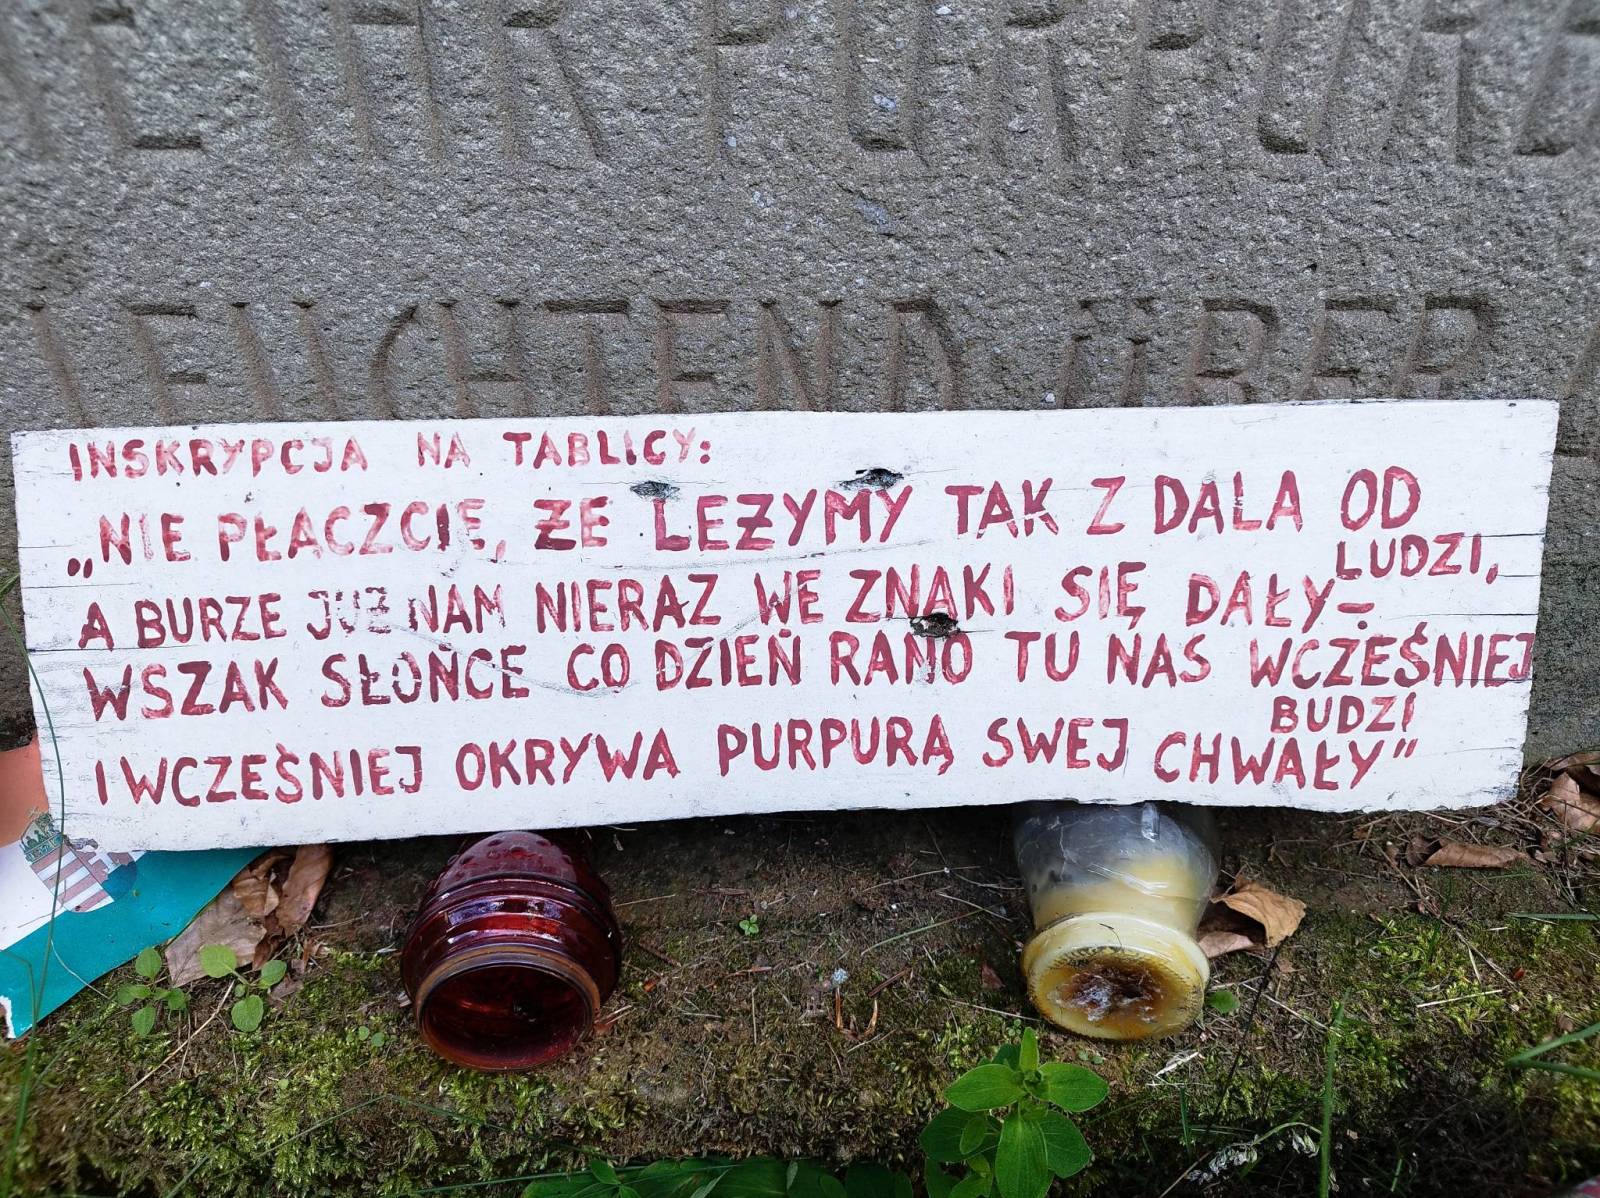 PURPUR
LEUCHTEND ÜBER
INSKRYPCJA NA TABLICY:
„NIE PŁACZCIE, ŻE LEŻYMY TAK Z DALA OD LUDZI,
A BURZE JUŻ NAM NIERAZ WE ZNAKI SIĘ DAŁY–
WSZAK SŁOŃCE CO DZIEŃ RANO TU NAS WCZEŚNIEJ BUDZI
I WCZEŚNIEJ OKRYWA PURPURĄ SWEJ CHWAŁY”